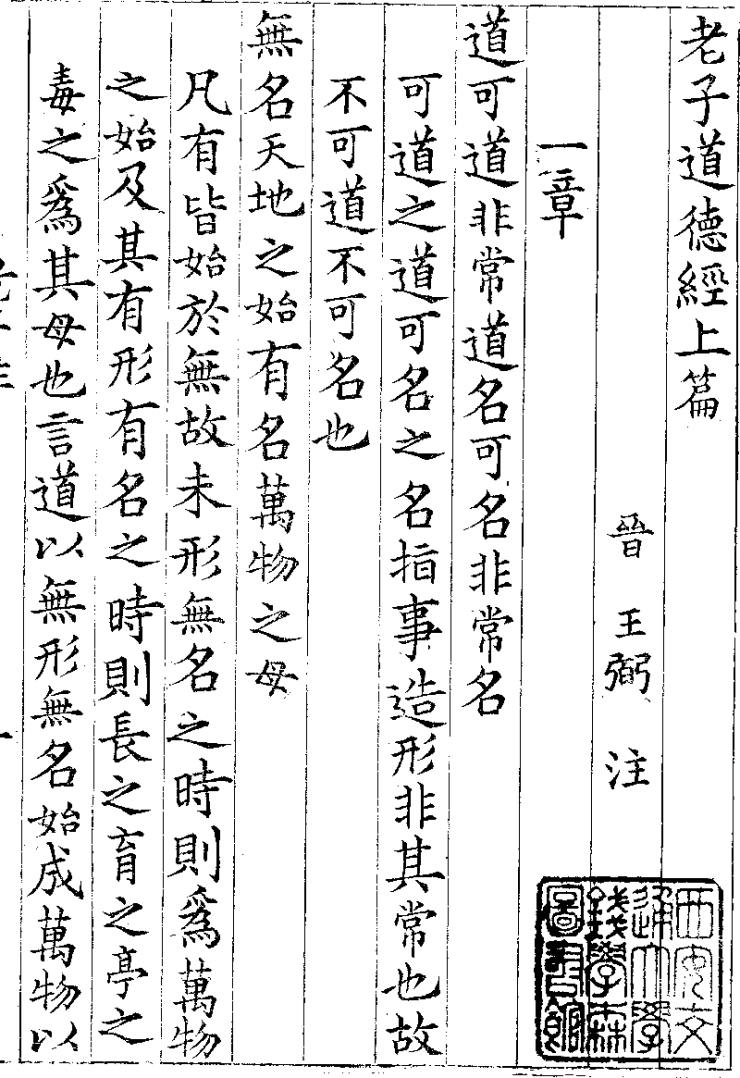 老子道德經上篇
晉 王弼 注
一章
道可道非常道名可名非常名
可道之道可名之名指事造形非其常也故
不可道不可名也
無名天地之始有名萬物之母
凡有皆始於無故未形無名之時則爲萬物
之始及其有形有名之時則長之育之亭之
毒之爲其母也言道以無形無名始成萬物以
西安交
通大學
錢學森
圖書館